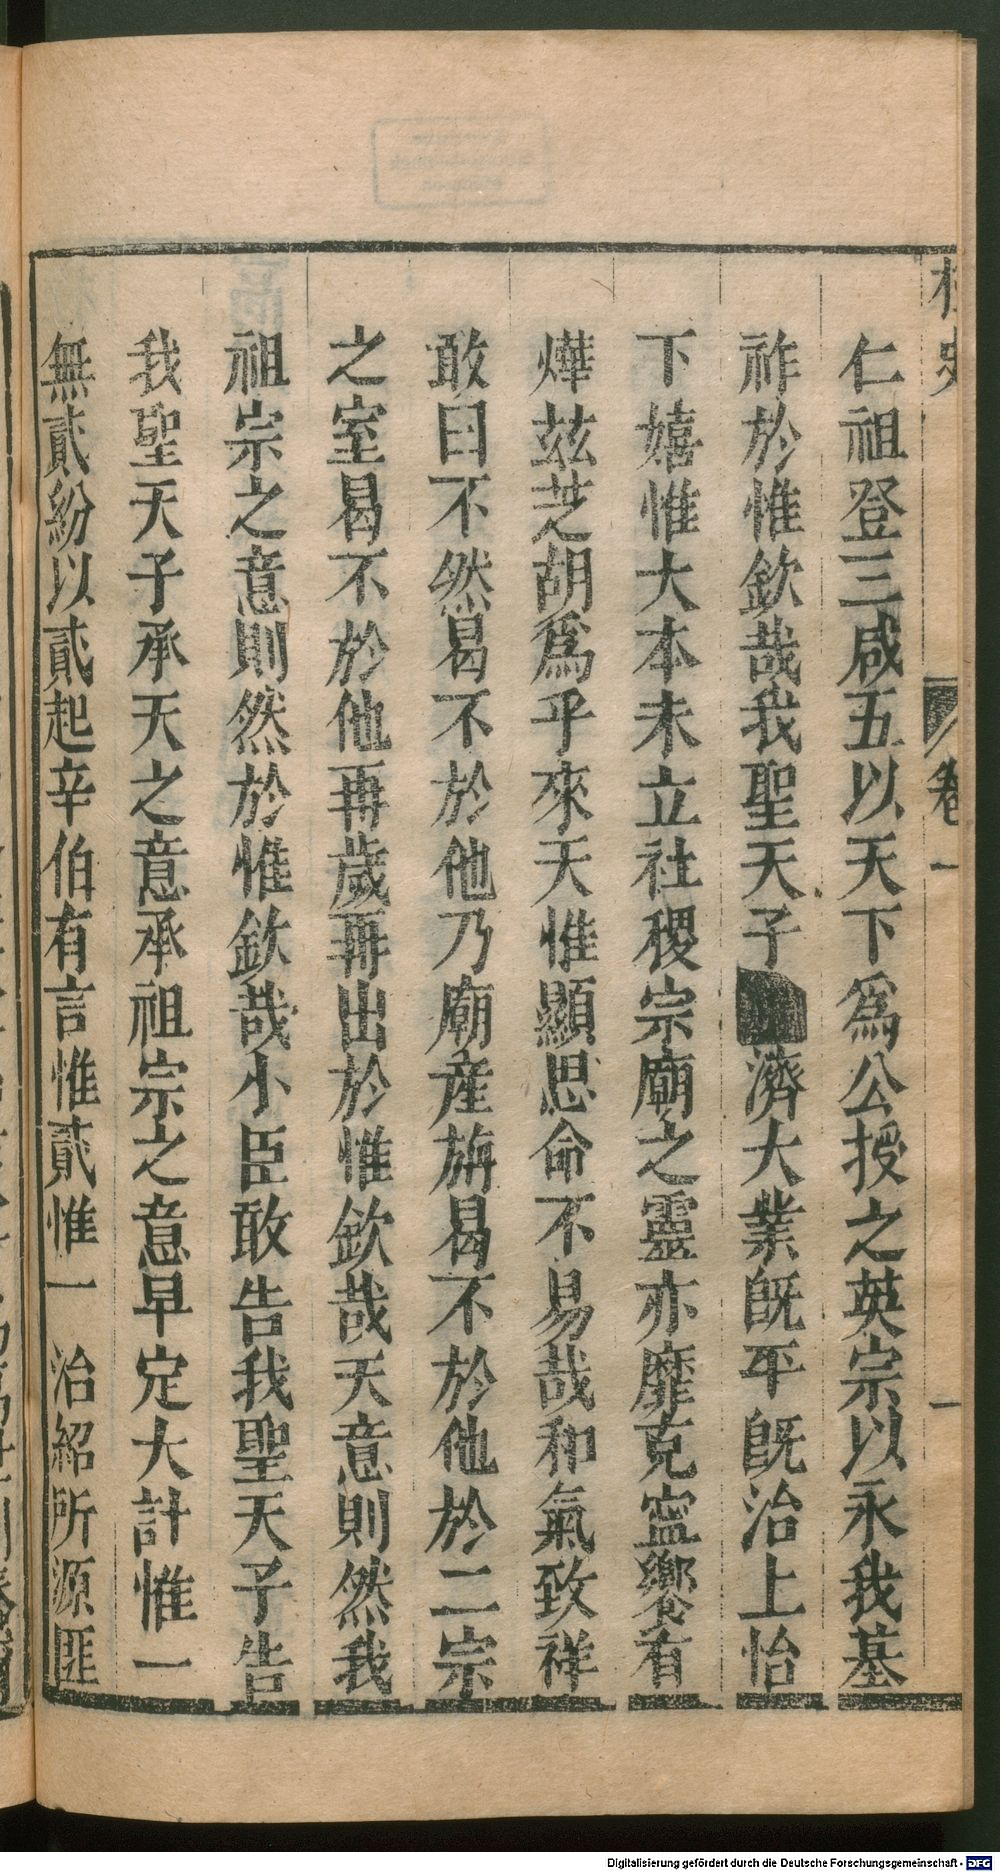 卷一
一
仁祖登三咸五以天下為公授之英宗以永我基
祚於惟欽哉我聖天子濟大業既平既治上怡
下嬉惟大本未立社稷宗廟之靈亦靡克寍饗有
燁兹芝胡為乎來天惟顯思命不易哉和氣致祥
敢曰不然曷不於他乃廟產旃曷不於他於二宗
之室曷不於他再歲再出於惟欽哉天意則然我
祖宗之意則然於惟欽哉小臣敢告我聖天子告
我聖天子承天之意承祖宗之意早定大計惟一
無貳紛以貳起辛伯有言惟貳惟一治紹所源匪
Digitalisierung gefördert durch die Deutsche Forschungsgemeinschaft - DFG